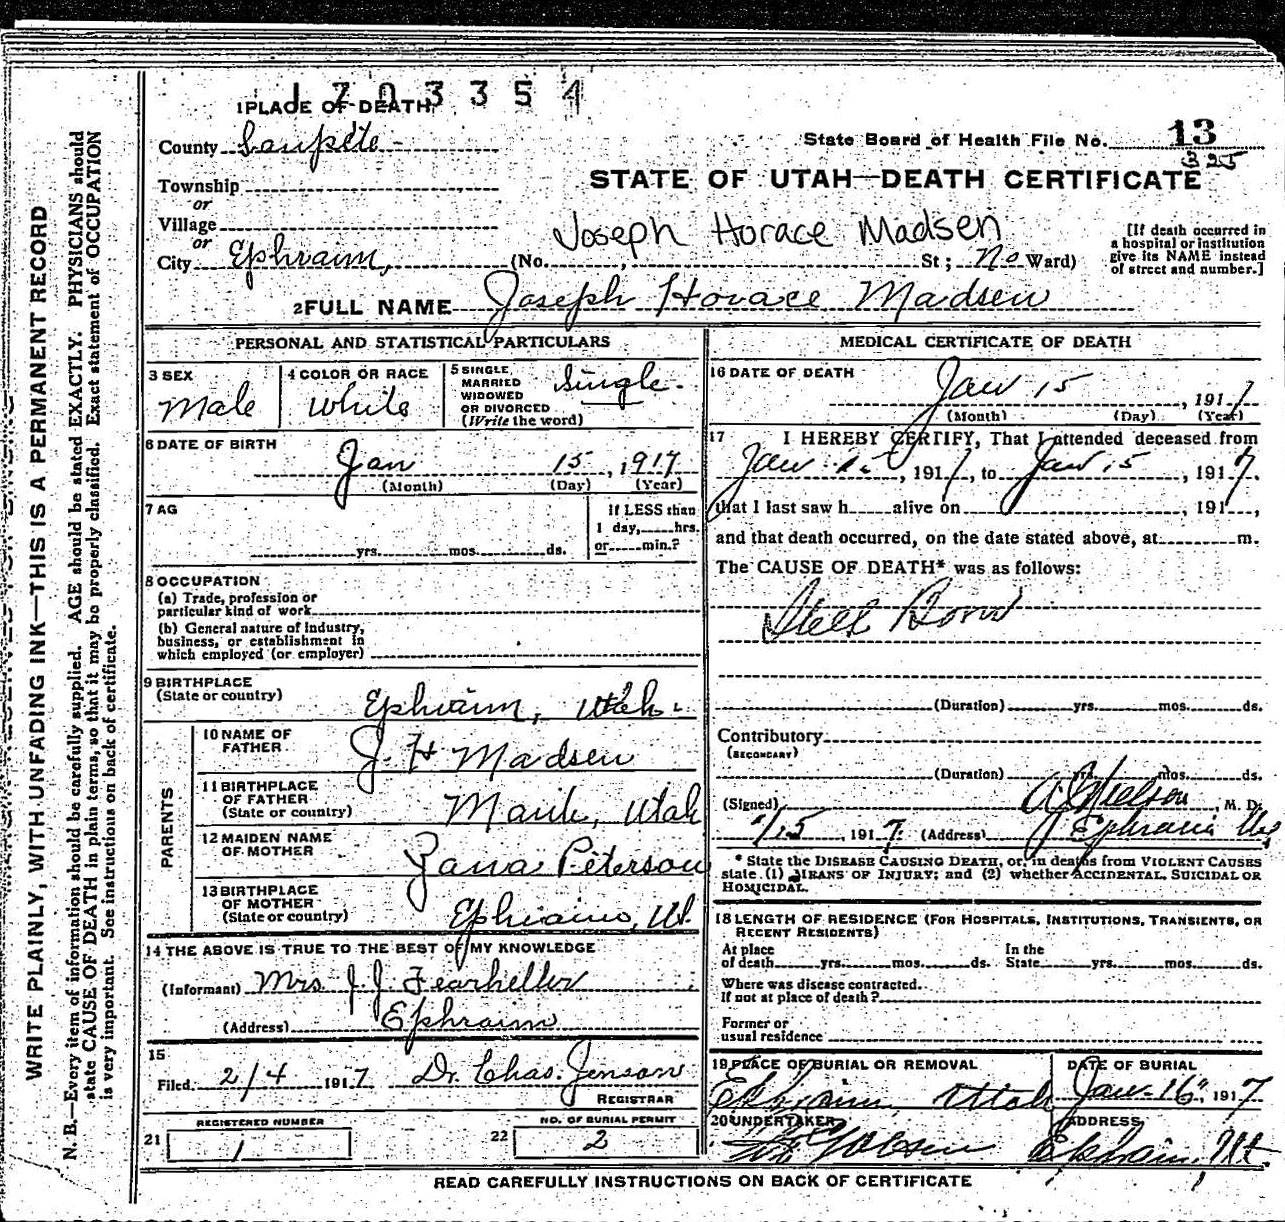 1703354
1 PLACE OF DEATH
County Sanpete
State Board of Health File No. 13
325
STATE OF UTAH—DEATH CERTIFICATE
Township
or
Village
or
City Ephraim,
Joseph Horace Madsen
(No. , St; No Ward)
[If death occurred in
a hospital or institution
give its NAME instead
of street and number.]
2 FULL NAME Joseph Horace Madsen
PERSONAL AND STATISTICAL PARTICULARS
3 SEX
Male
4 COLOR OR RACE
White
5 SINGLE,
MARRIED
WIDOWED
OR DIVORCED
(Write the word)
Single
6 DATE OF BIRTH
Jan 15, 1917
(Month) (Day) (Year)
7 AG
yrs. mos. ds.
If LESS than
1 day, hrs.
or min.?
8 OCCUPATION
(a) Trade, profession or
particular kind of work
(b) General nature of industry,
business, or establishment in
which employed (or employer)
9 BIRTHPLACE
(State or country)
Ephraim, Utah.
PARENTS
10 NAME OF
FATHER
J. H Madsen
11 BIRTHPLACE
OF FATHER
(State or country)
Manti, Utah
12 MAIDEN NAME
OF MOTHER
Zana Peterson
13 BIRTHPLACE
OF MOTHER
(State or country)
Ephraim, Ut.
14 THE ABOVE IS TRUE TO THE BEST OF MY KNOWLEDGE
(Informant) Mrs J. J. Fearheller
(Address) Ephraim
15
Filed 2/4 1917 Dr. Chas. Jenson
REGISTRAR
REGISTERED NUMBER
21 1
NO. OF BURIAL PERMIT
22 2
MEDICAL CERTIFICATE OF DEATH
16 DATE OF DEATH
Jan 15, 1917
(Month) (Day) (Year)
17 I HEREBY CERTIFY, That I attended deceased from
Jan 15, 1917, to Jan 15, 1917.
that I last saw h alive on , 191 ,
and that death occurred, on the date stated above, at m.
The CAUSE OF DEATH* was as follows:
Still Born
(Duration) yrs. mos. ds.
Contributory
(SECONDARY)
(Duration) yrs. mos. ds.
(Signed) Nielson, M. D.
1/15 1917. (Address) Ephraim Ut
* State the DISEASE CAUSING DEATH, or, in deaths from VIOLENT CAUSES
state (1) MEANS OF INJURY; and (2) whether ACCIDENTAL, SUICIDAL OR
HOMICIDAL.
18 LENGTH OF RESIDENCE (FOR HOSPITALS, INSTITUTIONS, TRANSIENTS, OR
RECENT RESIDENTS)
At place
of death yrs. mos. ds.
In the
State yrs. mos. ds.
Where was disease contracted
If not at place of death?
Former or
usual residence
19 PLACE OF BURIAL OR REMOVAL
Ephraim, Utah
DATE OF BURIAL
Jan. 16, 1917
20 UNDERTAKER
ADDRESS
Ephraim, Ut.
READ CAREFULLY INSTRUCTIONS ON BACK OF CERTIFICATE
WRITE PLAINLY, WITH UNFADING INK—THIS IS A PERMANENT RECORD
N. B.—Every item of information should be carefully supplied. AGE should be stated EXACTLY. PHYSICIANS should
state CAUSE OF DEATH in plain terms, so that it may be properly classified. Exact statement of OCCUPATION
is very important. See instructions on back of certificate.